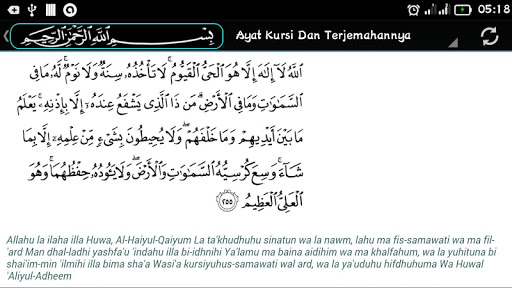 05:18
بِسْمِ اللَّهِ الرَّحْمَٰنِ الرَّحِيمِ
Ayat Kursi Dan Terjemahannya
اللَّهُ لَا إِلَٰهَ إِلَّا هُوَ الْحَيُّ الْقَيُّومُ ۚ لَا تَأْخُذُهُ سِنَةٌ وَلَا نَوْمٌ ۚ لَّهُ مَا فِي
السَّمَاوَاتِ وَمَا فِي الْأَرْضِ ۗ مَن ذَا الَّذِي يَشْفَعُ عِندَهُ إِلَّا بِإِذْنِهِ ۚ يَعْلَمُ
مَا بَيْنَ أَيْدِيهِمْ وَمَا خَلْفَهُمْ ۖ وَلَا يُحِيطُونَ بِشَيْءٍ مِّنْ عِلْمِهِ إِلَّا بِمَا
شَاءَ ۚ وَسِعَ كُرْسِيُّهُ السَّمَاوَاتِ وَالْأَرْضَ ۖ وَلَا يَئُودُهُ حِفْظُهُمَا ۚ وَهُوَ
الْعَلِيُّ الْعَظِيمُ ٢٥٥
Allahu la ilaha illa Huwa, Al-Haiyul-Qaiyum La ta'khudhuhu sinatun wa la nawm, lahu ma fis-samawati wa ma fil-
'ard Man dhal-ladhi yashfa'u 'indahu illa bi-idhnihi Ya'lamu ma baina aidihim wa ma khalfahum, wa la yuhituna bi
shai'im-min 'ilmihi illa bima sha'a Wasi'a kursiyuhus-samawati wal ard, wa la ya'uduhu hifdhuhuma Wa Huwal
'Aliyul-Adheem